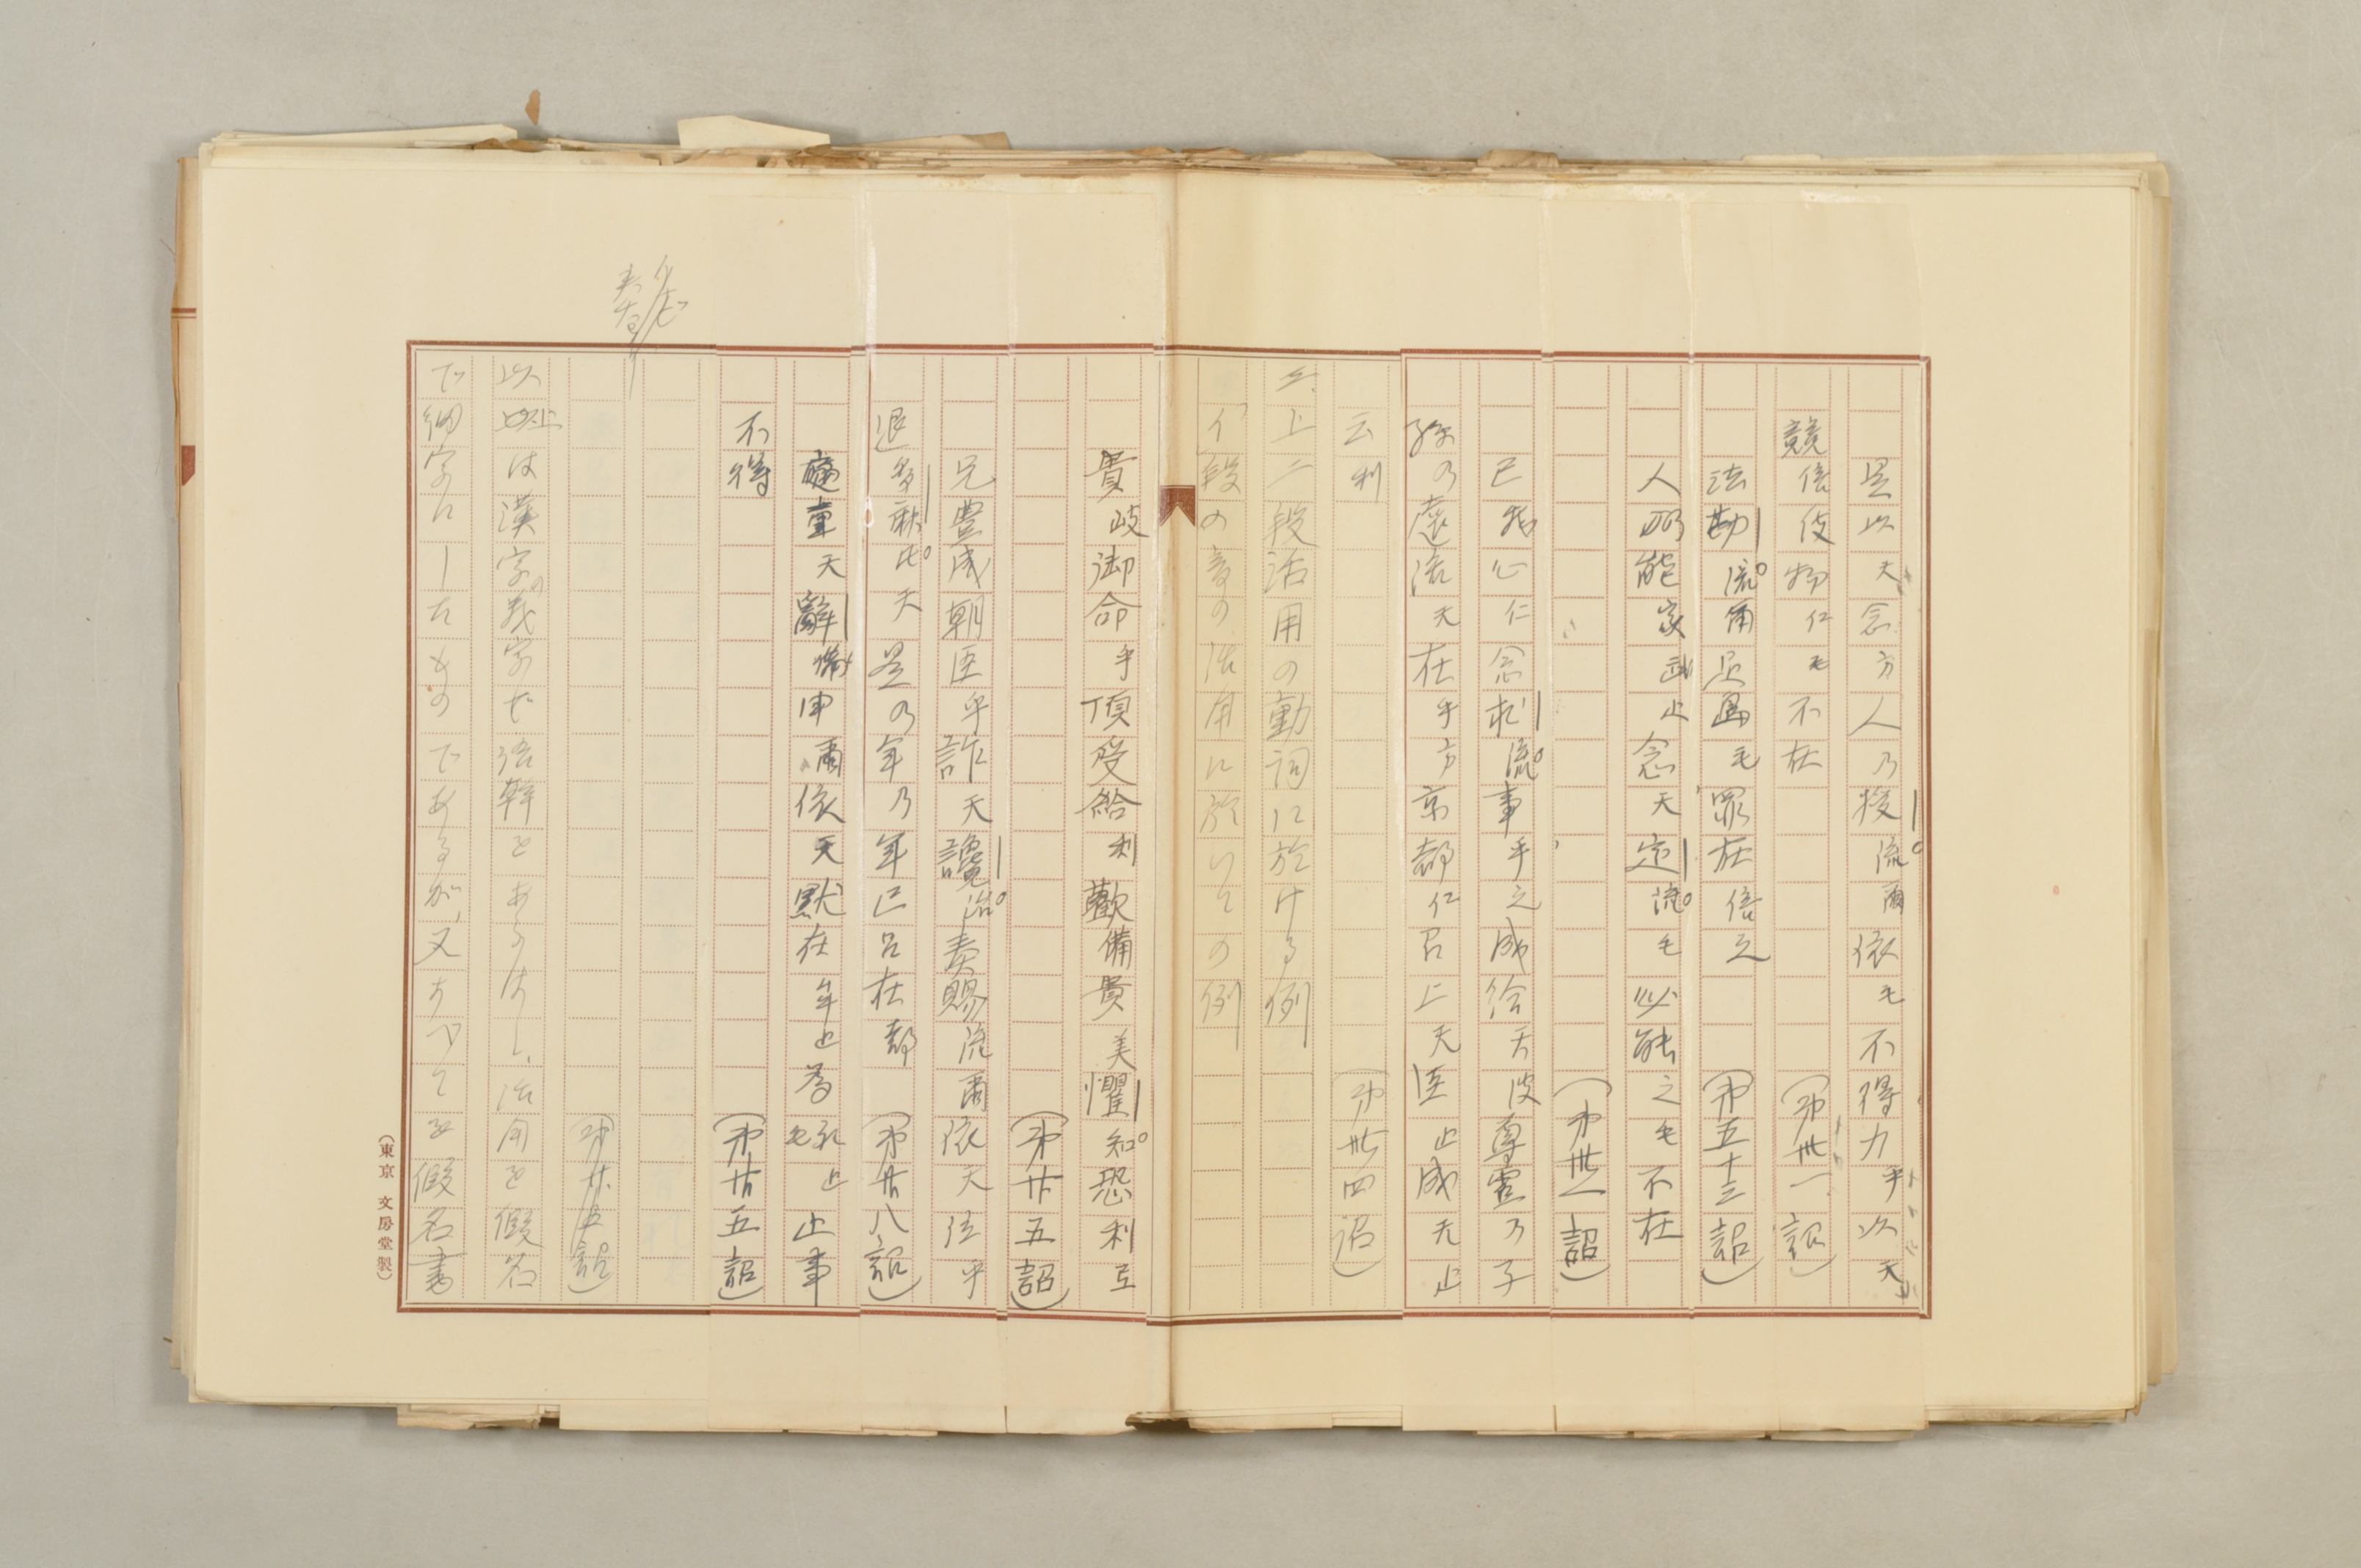 是以天念方人乃授流爾依毛不得力乎以天
競倍伎物仁毛不在（第卅一詔）
法勘流爾足島毛罪在倍之（第五十三詔）
人仍能家武止念天定流毛必能之毛不在
（第卅一詔）
己我心仁念於流事乎之成給天波尊霊乃子
孫乃遠流天在乎方京都仁召上天臣止成无止
云利（第卅四詔）
三、上二段活用の動詞に於ける例
イ段の音の活用に於いての例
貴岐御命乎頂受給利歓備貴美懼知恐利互
（第廿五詔）
兄豊成朝臣乎詐天讒治奏賜流爾依天位乎
退多夫比天是乃年乃年己呂在都（第廿八詔）
重天辭備申爾依天默在牟止為礼止毛止事
不得（第廿五詔）
（第廿五詔）
以上は漢字の義字で語幹をあらはし、活用を假名
で細字にしたものであるが、又すべてを假名書
（東京 文房堂製）